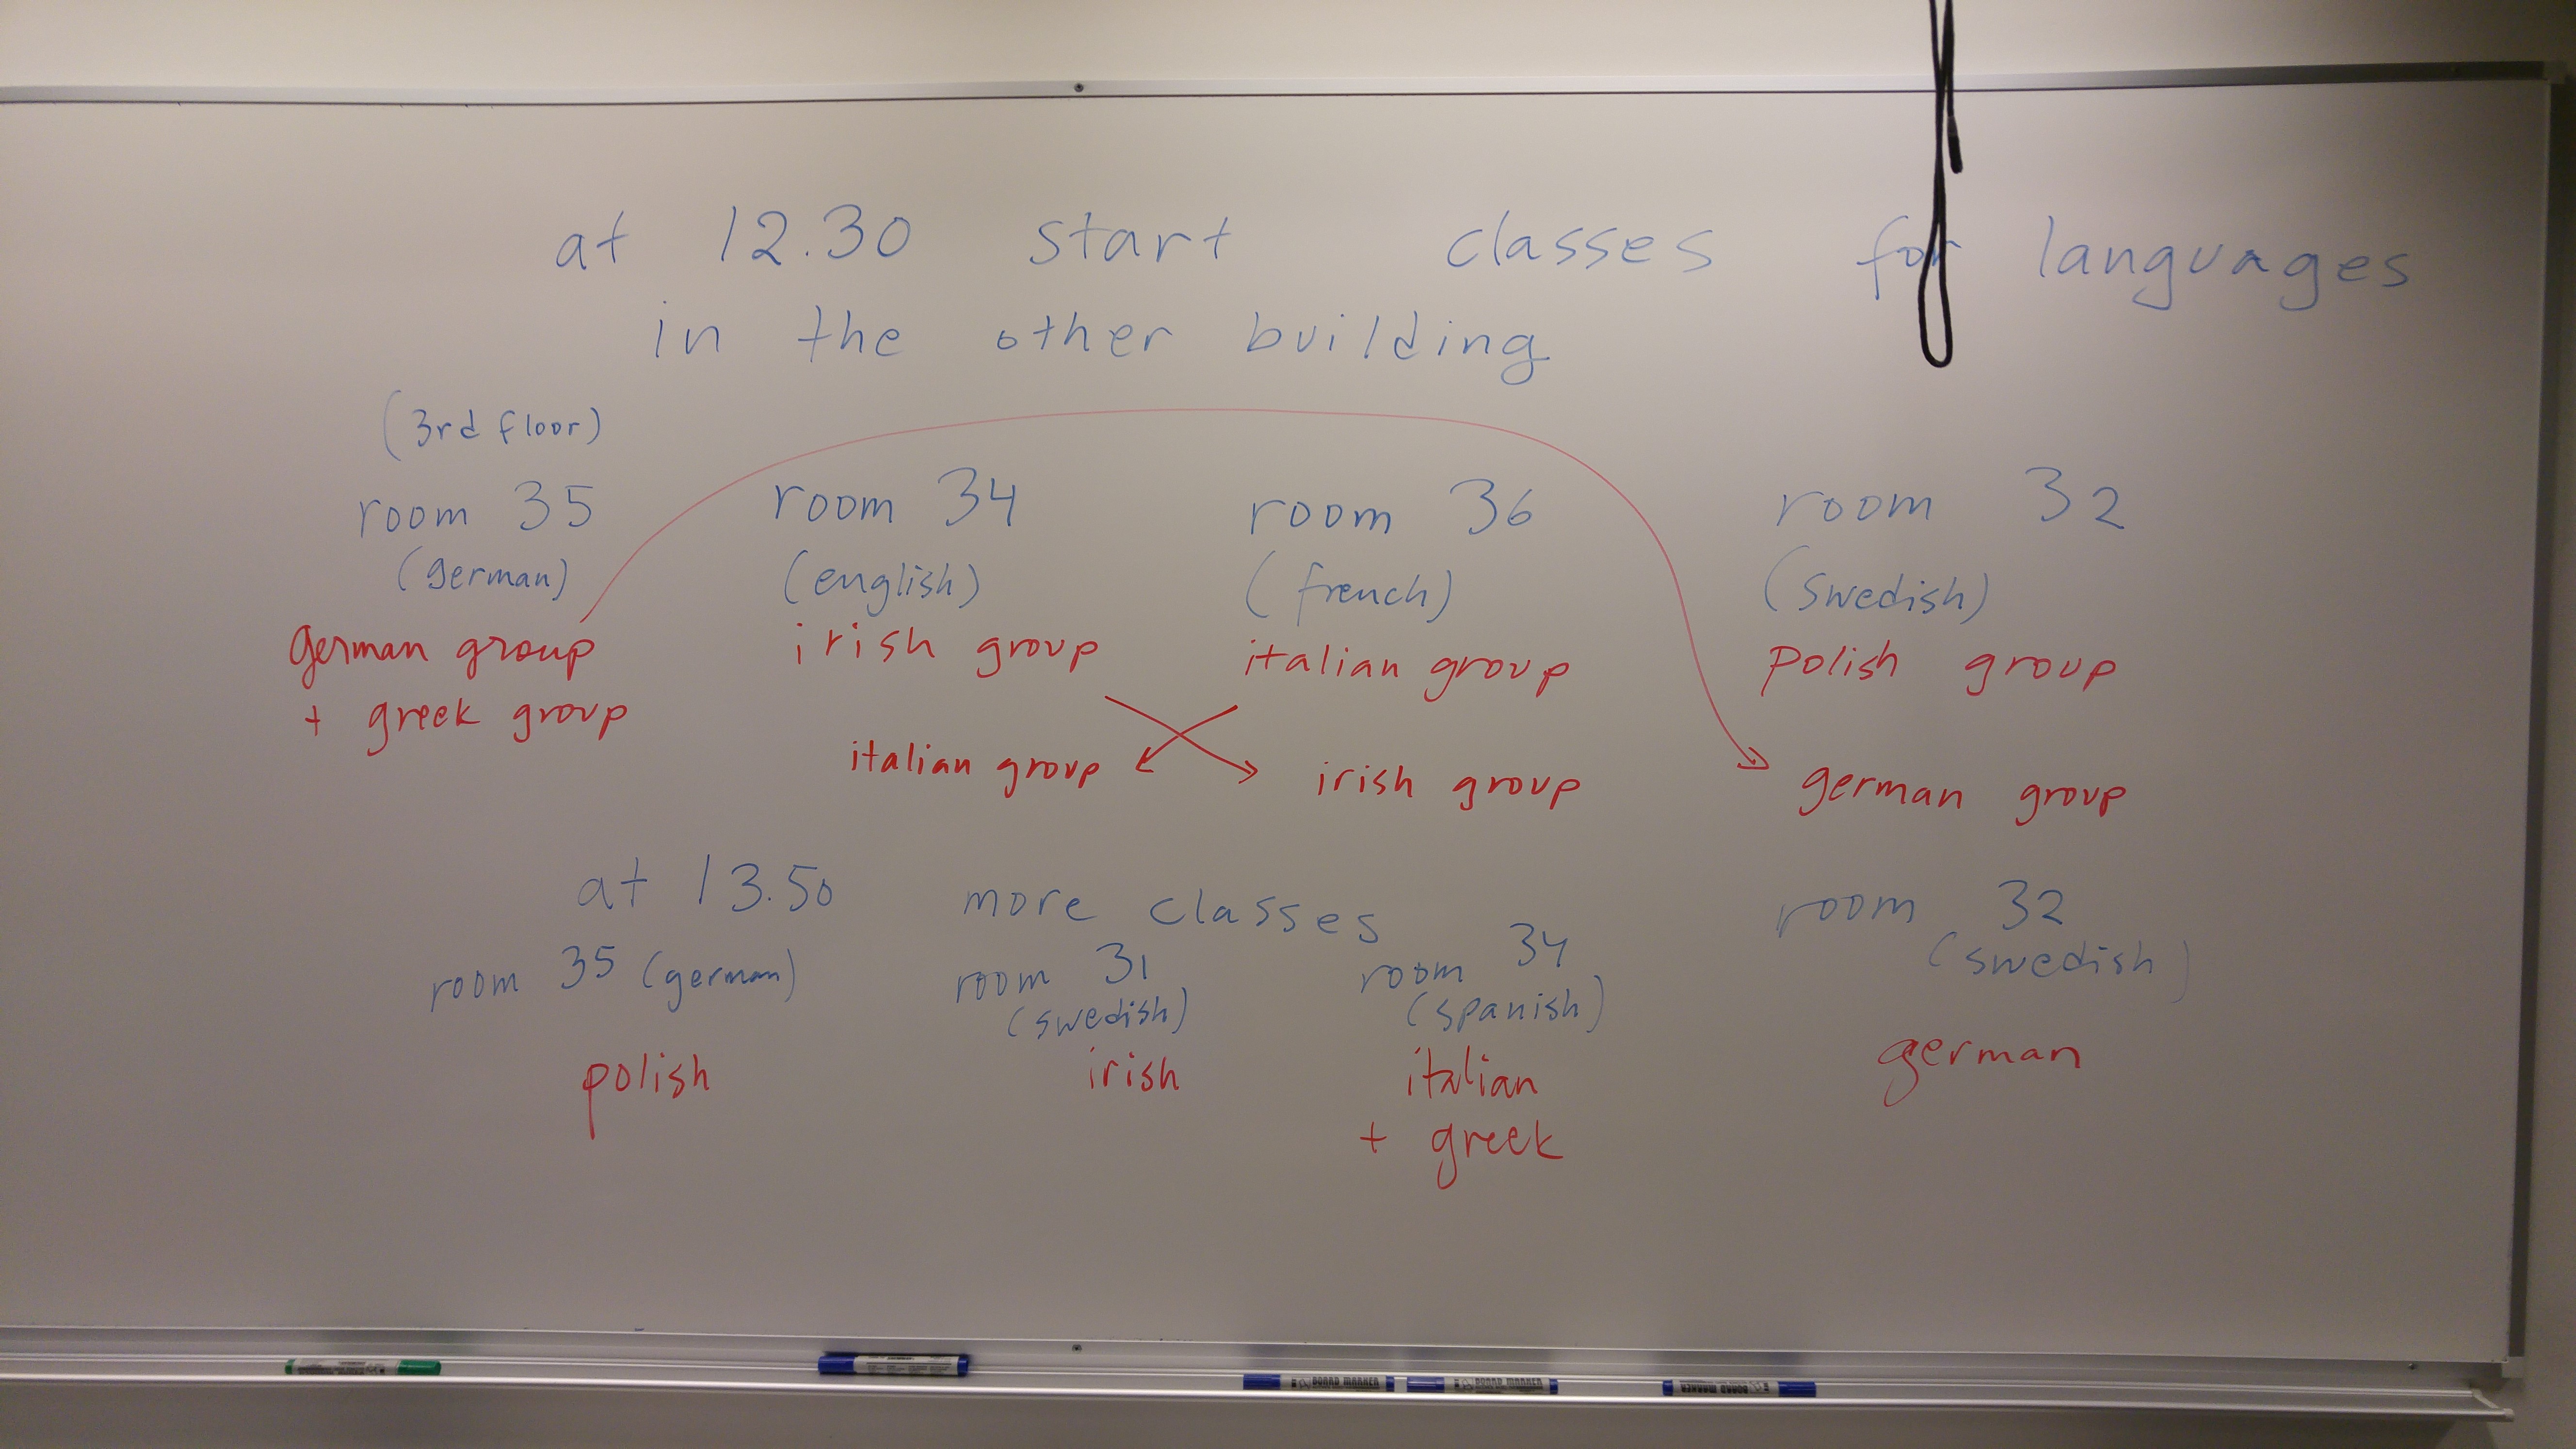 at 12.30 start classes for languages
in the other building
(3rd floor)
room 35
(german)
german group
+ greek group
room 34
(english)
irish group
italian group
room 36
(french)
italian group
irish group
room 32
(swedish)
polish group
german group
at 13.50 more classes
room 35 (german)
polish
room 31
(swedish)
irish
room 34
(spanish)
italian
+ greek
room 32
(swedish)
german
BOARD MARKER
BOARD MARKER
BOARD MARKER